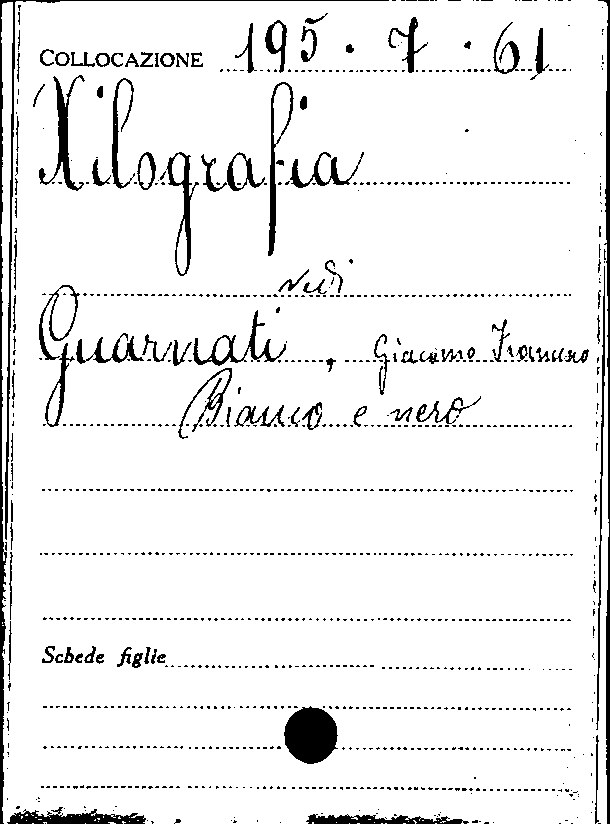 COLLOCAZIONE 195 . 7 . 61
Xilografia
vedi
Guarnati , Giacomo Francesco
Bianco e nero
Schede figlie